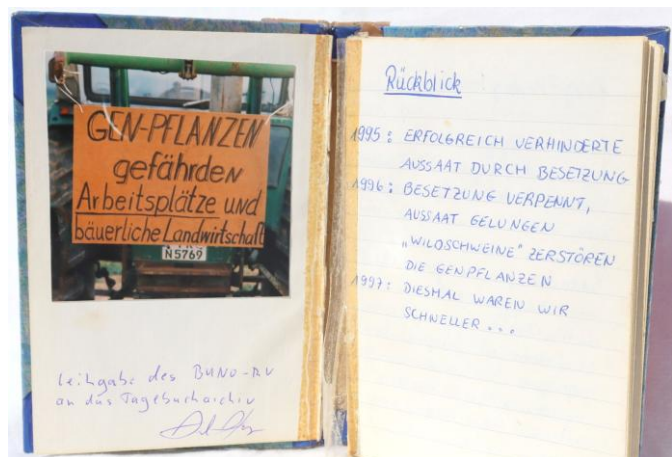 GEN-PFLANZEN
gefährden
Arbeitsplätze und
bäuerliche Landwirtschaft
N 5769
Leihgabe des BUND-RV
an das Tagebucharchiv
Rückblick
1995: ERFOLGREICH VERHINDERTE
AUSSAAT DURCH BESETZUNG
1996: BESETZUNG VERPENNT,
AUSSAAT GELUNGEN
„WILDSCHWEINE" ZERSTÖREN
DIE GENPFLANZEN
1997: DIESMAL WAREN WIR
SCHNELLER...